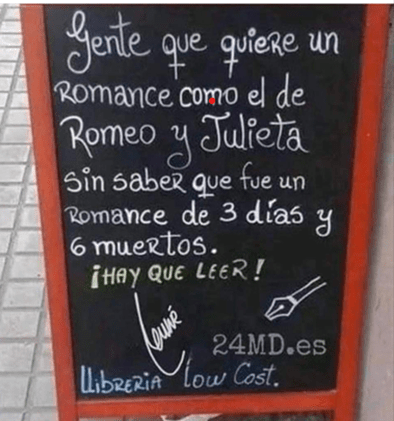 Gente que quiere un
Romance como el de
Romeo y Julieta
sin saber que fue un
Romance de 3 días y
6 muertos.
¡HAY QUE LEER!
24MD.es
LLIBRERIA low Cost.